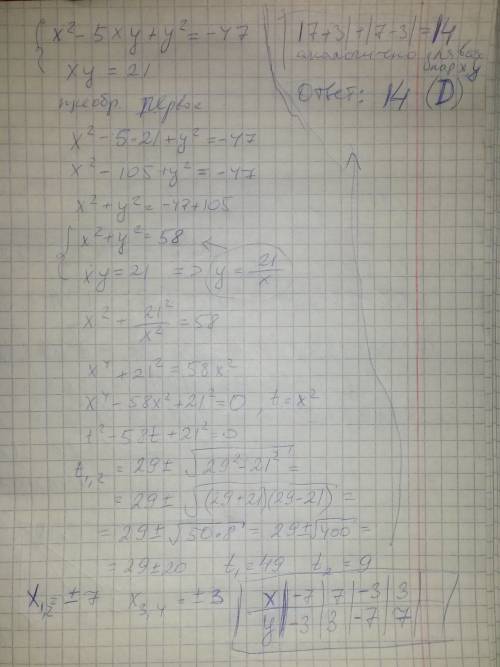 x² - 5xy + y² = -47
xy = 21
преобр. первое
x² - 5·21 + y² = -47
x² - 105 + y² = -47
x² + y² = -47 + 105
x² + y² = 58
xy = 21 => y = 21/x
x² + 21²/x² = 58
x⁴ + 21² = 58x²
x⁴ - 58x² + 21² = 0, t = x²
t² - 58t + 21² = 0
t₁,₂ = 29 ± √(29² - 21²) =
= 29 ± √((29+21)(29-21)) =
= 29 ± √(50·8) = 29 ± √400 =
= 29 ± 20 t₁ = 49 t₂ = 9
x₁,₂ = ±7 x₃,₄ = ±3
x | -7 | 7 | -3 | 3
y | -3 | 3 | -7 | 7
|7+3| + |7-3| = 14
аналогично для всех
пар xy
Ответ: 14 (D)